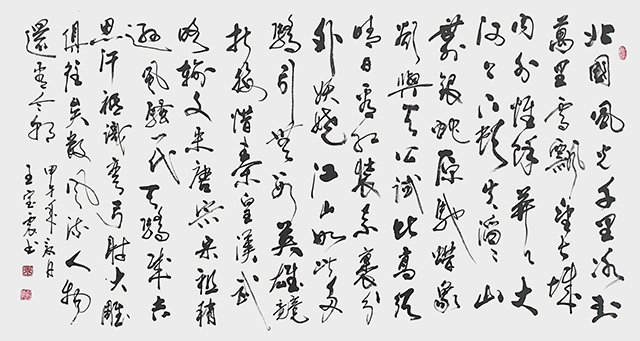 北國風光千里冰封
萬里雪飄望長城
内外惟餘莽莽大
河上下頓失滔滔山
舞銀蛇原馳蠟象
欲與天公試比高須
晴日看紅裝素裹分
外妖嬈江山如此多
嬌引無數英雄競
折腰惜秦皇漢武
略輸文采唐宗宋祖稍
遜風騷一代天驕成吉
思汗祗識彎弓射大雕
俱往矣數風流人物
還看今朝
甲午年 月
王 书